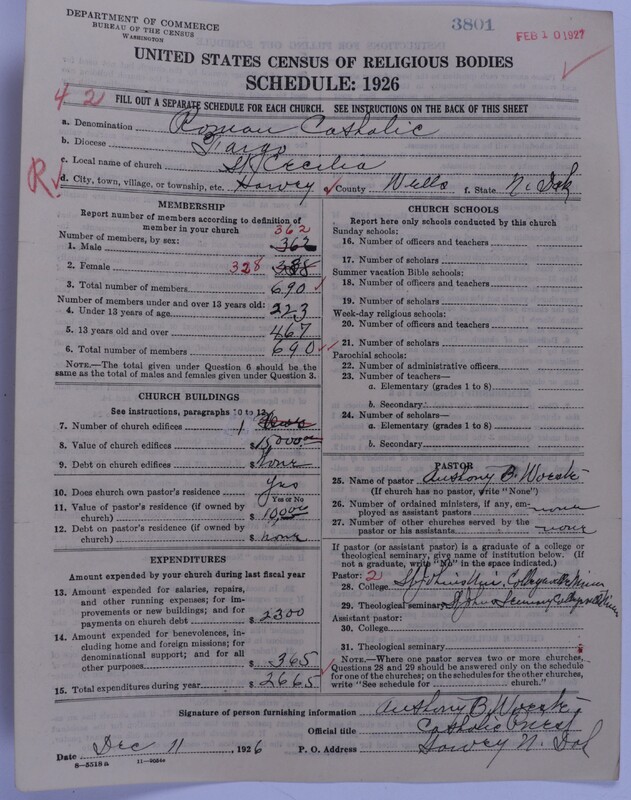 DEPARTMENT OF COMMERCE
BUREAU OF THE CENSUS
WASHINGTON
3801
FEB 10 1927
UNITED STATES CENSUS OF RELIGIOUS BODIES
SCHEDULE: 1926
4 2
FILL OUT A SEPARATE SCHEDULE FOR EACH CHURCH. SEE INSTRUCTIONS ON THE BACK OF THIS SHEET
a. Denomination Roman Catholic
b. Diocese Fargo
c. Local name of church St Cecilia
R
d. City, town, village, or township, etc. Harvey County Wells f. State N. Dak
MEMBERSHIP
Report number of members according to definition of
member in your church
362
Number of members, by sex:
1. Male 362
2. Female 328
3. Total number of members 690
Number of members under and over 13 years old:
4. Under 13 years of age 223
5. 13 years old and over 467
6. Total number of members 690
NOTE.—The total given under Question 6 should be
the same as the total of males and females given under Question 3.
CHURCH BUILDINGS
See instructions, paragraphs 10 to 12
7. Number of church edifices 1
8. Value of church edifices $ 15,000.00
9. Debt on church edifices $ None
10. Does church own pastor's residence Yes
Yes or No
11. Value of pastor's residence (if owned by
church) $ 10,000
12. Debt on pastor's residence (if owned by
church) $ none
EXPENDITURES
Amount expended by your church during last fiscal year
13. Amount expended for salaries, repairs,
and other running expenses; for im-
provements or new buildings; and for
payments on church debt $ 2300
14. Amount expended for benevolences, in-
cluding home and foreign missions; for
denominational support; and for all
other purposes $ 365
15. Total expenditures during year $ 2665
CHURCH SCHOOLS
Report here only schools conducted by this church
Sunday schools:
16. Number of officers and teachers
17. Number of scholars
Summer vacation Bible schools:
18. Number of officers and teachers
19. Number of scholars
Week-day religious schools:
20. Number of officers and teachers
21. Number of scholars
Parochial schools:
22. Number of administrative officers
23. Number of teachers—
a. Elementary (grades 1 to 8)
b. Secondary
24. Number of scholars—
a. Elementary (grades 1 to 8)
b. Secondary
PASTOR
25. Name of pastor Anthony B.
(If church has no pastor, write "None")
26. Number of ordained ministers, if any, em-
ployed as assistant pastors none
27. Number of other churches served by the
pastor or his assistants none
If pastor (or assistant pastor) is a graduate of a college or
theological seminary, give name of institution below. (If
not a graduate, write "No" in the space indicated.)
Pastor: 2
28. College St John's
29. Theological seminary St John Seminary
Assistant pastor:
30. College
31. Theological seminary
NOTE.—Where one pastor serves two or more churches,
Questions 28 and 29 should be answered only on the schedule
for one of the churches; on the schedules for the other churches,
write "See schedule for church."
Signature of person furnishing information Anthony B.
Official title Catholic Priest
Date Dec 11, 1926 P. O. Address Harvey N. Dak
8—5518 a